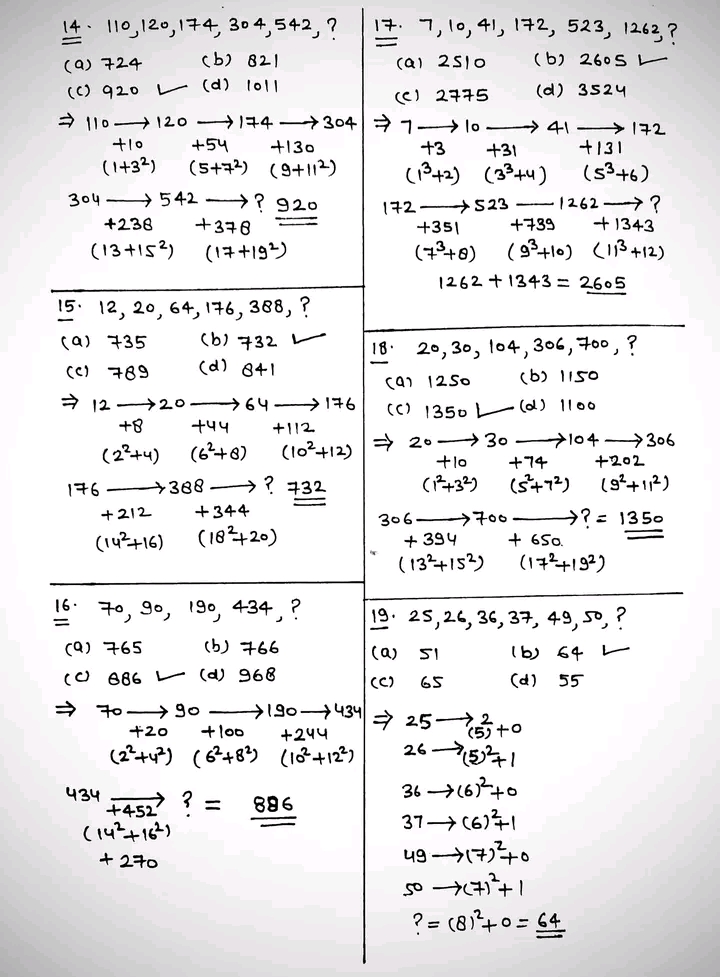 14. 110,120,174, 304,542, ?
(a) 724 (b) 821
(c) 920 ✓ (d) 1011
⇒ 110 → 120 → 174 → 304
+10 +54 +130
(1+3²) (5+7²) (9+11²)
304 → 542 → ? 920
+238 +378
(13+15²) (17+19²)
15. 12, 20, 64, 176, 388, ?
(a) 735 (b) 732 ✓
(c) 789 (d) 841
⇒ 12 → 20 → 64 → 176
+8 +44 +112
(2²+4) (6²+8) (10²+12)
176 → 388 → ? 732
+212 +344
(14²+16) (18²+20)
16. 70, 90, 190, 434, ?
(a) 765 (b) 766
(c) 886 ✓ (d) 968
⇒ 70 → 90 → 190 → 434
+20 +100 +244
(2²+4²) (6²+8²) (10²+12²)
434 → ? = 886
+452
(14²+16²)
+270
17. 7, 10, 41, 172, 523, 1262, ?
(a) 2510 (b) 2605 ✓
(c) 2775 (d) 3524
⇒ 7 → 10 → 41 → 172
+3 +31 +131
(1³+2) (3³+4) (5³+6)
172 → 523 — 1262 → ?
+351 +739 +1343
(7³+8) (9³+10) (11³+12)
1262 + 1343 = 2605
18. 20, 30, 104, 306, 700, ?
(a) 1250 (b) 1150
(c) 1350 ✓ (d) 1100
⇒ 20 → 30 → 104 → 306
+10 +74 +202
(1²+3²) (5²+7²) (9²+11²)
306 → 700 → ? = 1350
+394 + 650.
(13²+15²) (17²+19²)
19. 25, 26, 36, 37, 49, 50, ?
(a) 51 (b) 64 ✓
(c) 65 (d) 55
⇒ 25 → (5)²+0
26 → (5)²+1
36 → (6)²+0
37 → (6)²+1
49 → (7)²+0
50 → (7)²+1
? = (8)²+0 = 64